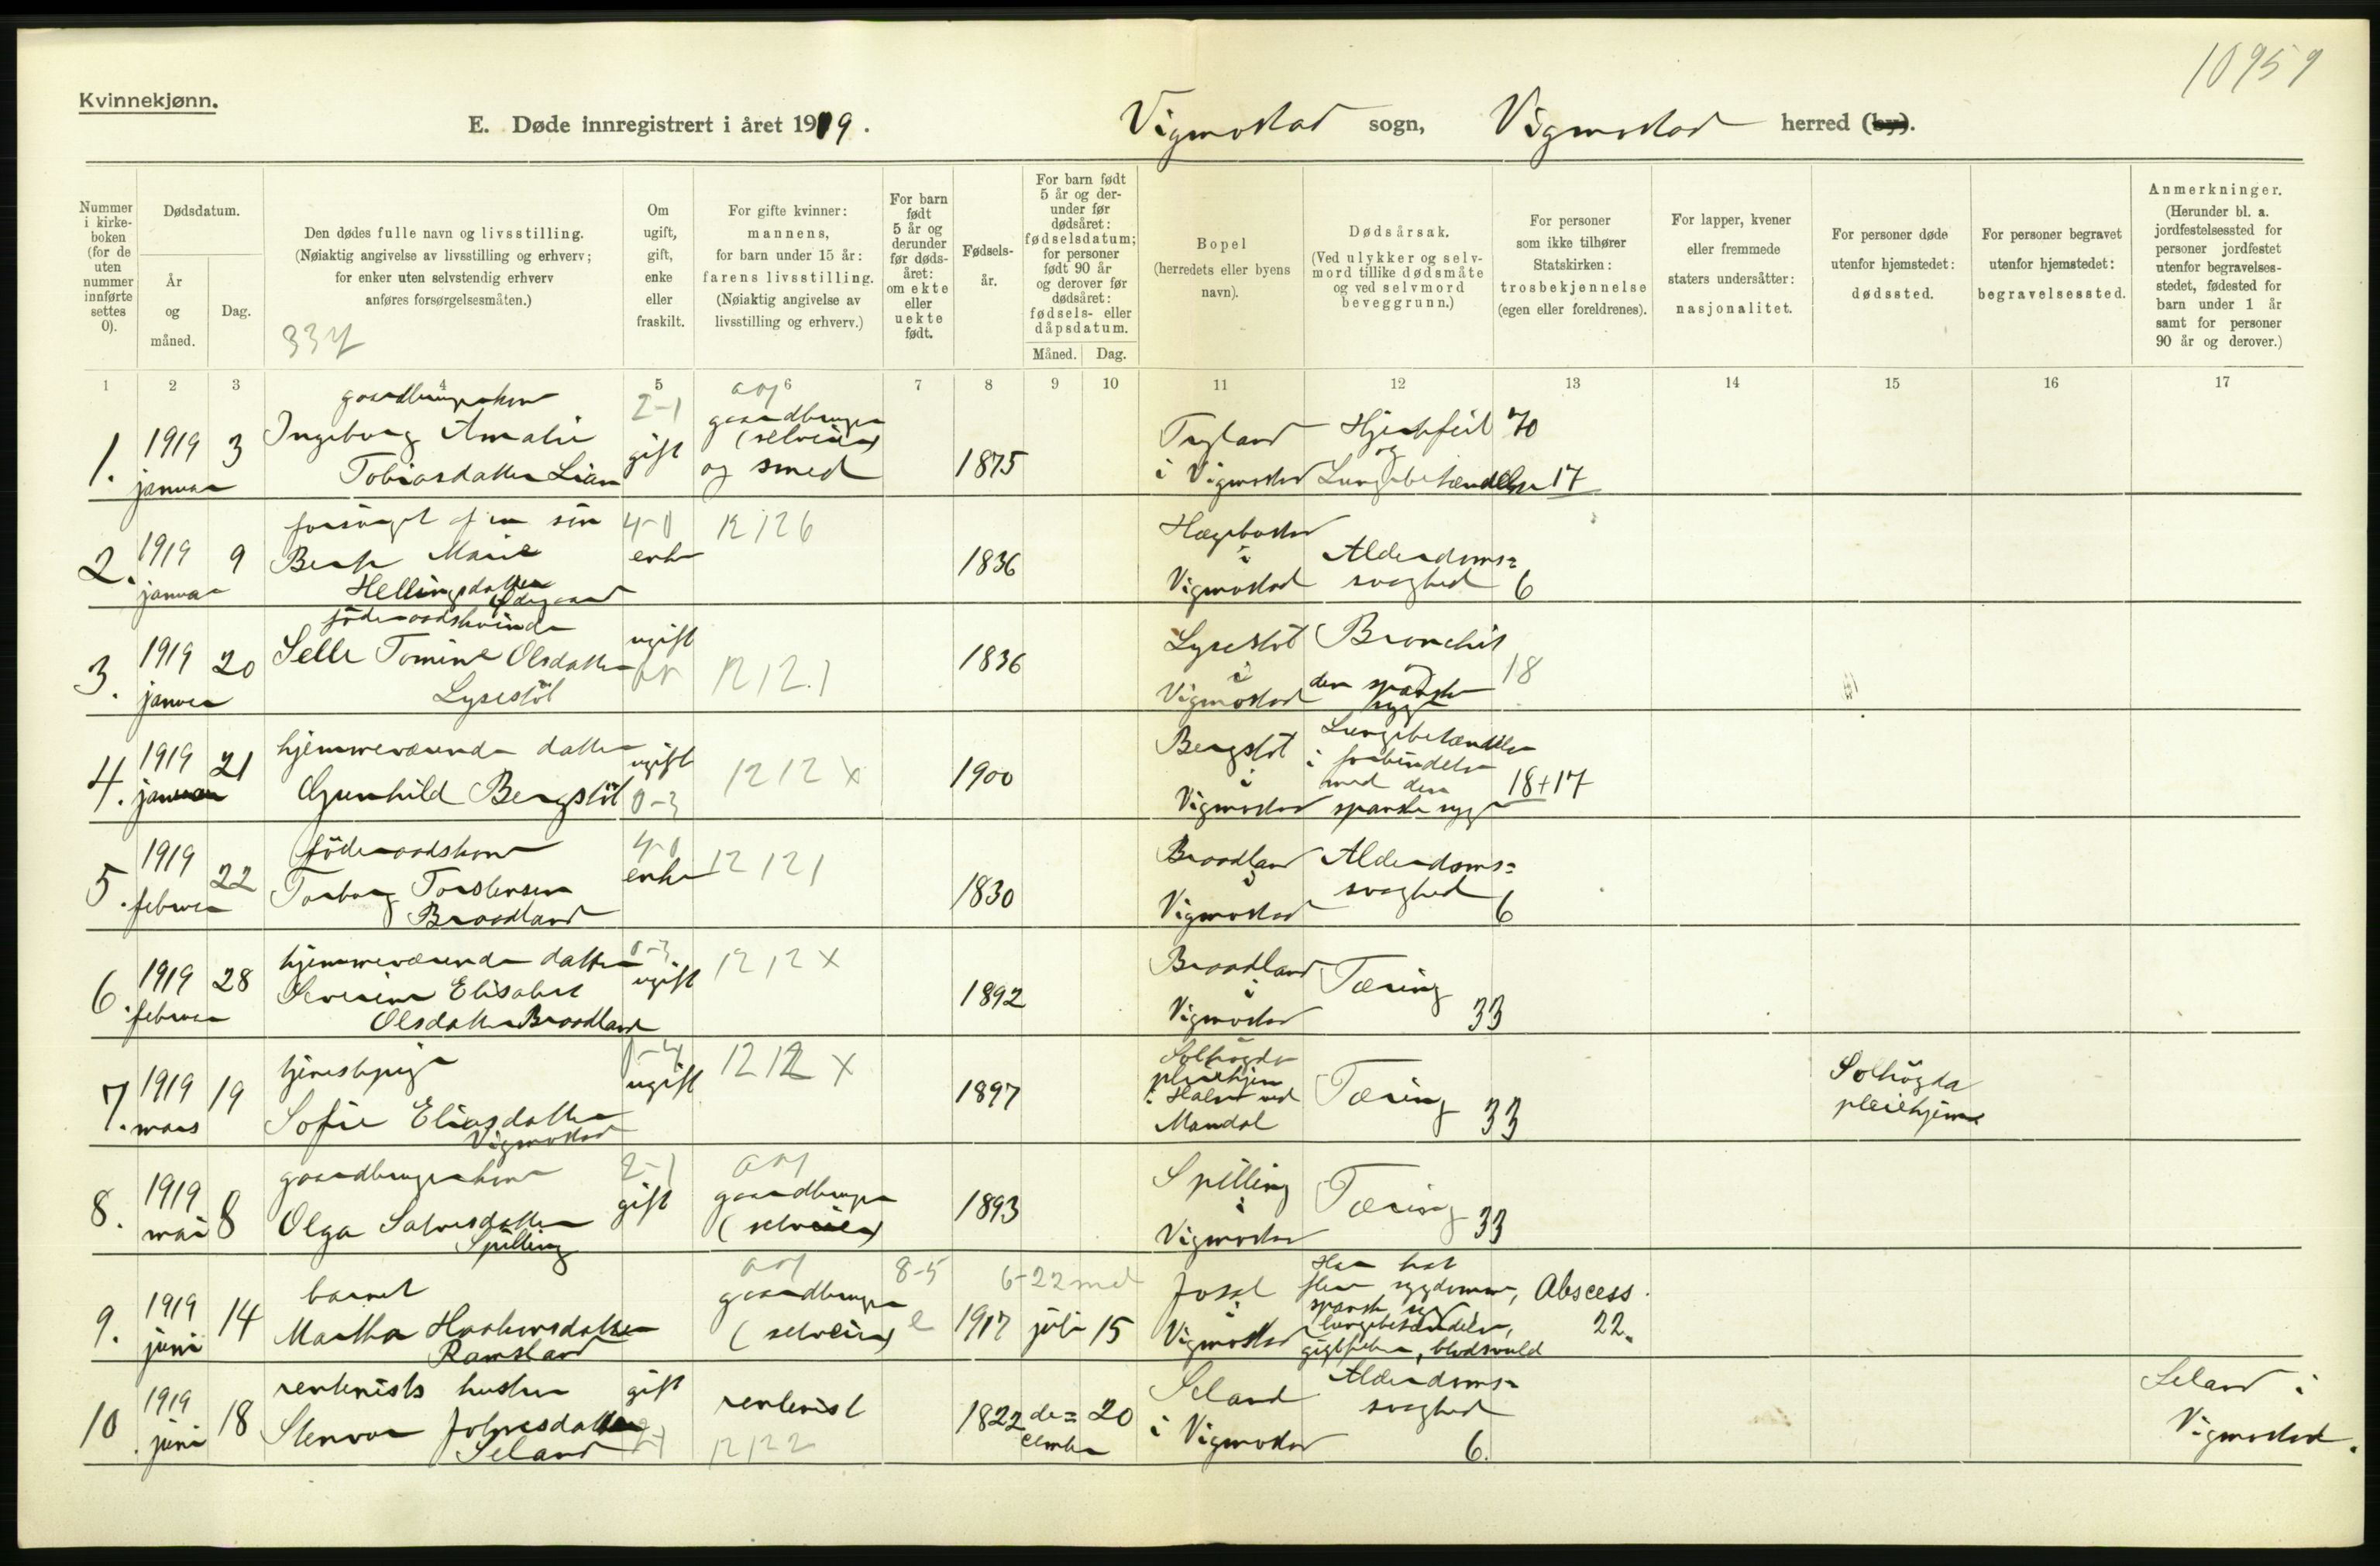 10959
Kvinnekjønn.
E. Døde innregistrert i året 1919.
Vigmostad sogn, Vigmostad herred (by).
Nummer i kirke-boken (for de uten nummer innførte settes 0).
Dødsdatum.
År og måned.
Dag.
Den dødes fulle navn og livsstilling.
(Nøiaktig angivelse av livsstilling og erhverv;
for enker uten selvstendig erhverv
anføres forsørgelsesmåten.)
337
Om ugift, gift, enke eller fraskilt.
For gifte kvinner:
mannens,
for barn under 15 år:
farens livsstilling.
(Nøiaktig angivelse av
livsstilling og erhverv.)
For barn født 5 år og derunder før døds-året: om ekte eller uekte født.
Fødsels-år.
For barn født 5 år og der-under før dødsåret: fødselsdatum; for personer født 90 år og derover før dødsåret: fødsels- eller dåpsdatum.
Måned. Dag.
Bopel
(herredets eller byens
navn).
Dødsårsak.
(Ved ulykker og selv-
mord tillike dødsmåte
og ved selvmord
beveggrunn.)
For personer
som ikke tilhører
Statskirken:
trosbekjennelse
(egen eller foreldrenes).
For lapper, kvener
eller fremmede
staters undersåtter:
nasjonalitet.
For personer døde
utenfor hjemstedet:
dødssted.
For personer begravet
utenfor hjemstedet:
begravelsessted.
Anmerkninger.
(Herunder bl. a.
jordfestelsessted for
personer jordfestet
utenfor begravelses-
stedet, fødested for
barn under 1 år
samt for personer
90 år og derover.)
1 2 3 4 5 6 7 8 9 10 11 12 13 14 15 16 17
1. 1919 januar 3
gaardbrugerkone
Ingeborg Amalie
Tobiasdatter Lian
2-1
gift
gaardbruger
(selveier)
og smed
1875
i Vigmostad
Hjertefeil 70
og
Lungebetændelse 17
2. 1919 januar 9
forsörget af en sön
Berte Marie
Hellingsdatter
Ødegaard
4-0
enke
12126
1836
Hægebostad
i
Vigmostad
Alderdoms=
svaghed 6
3. 1919 januar 20
föderaadskvinde
Selle Tomine Olsdatter
Lysestöl
ugift
12 12.1
1836
Lysestöl
i
Vigmostad
Bronchit
den spanske
syge
18
4. 1919 januar 21
hjemmeværende datter
Gunhild Bergstöl
ugift
0-3
1212 X
1900
Bergstöl
i
Vigmostad
Lungebetændelse
i forbindelse
med den
spanske syge
18+17
5. 1919 februar 22
föderaadskone
Torborg Torstensen
Braadland
4-0
enke
12 121
1830
Braadland
i
Vigmostad
Alderdoms=
svaghed 6
6. 1919 februar 28
hjemmeværende datter
Severine Elisabet
Olsdatter Braadland
0-3
ugift
1212 X
1892
Braadland
i
Vigmostad
Tæring
33
7. 1919 mars 19
tjenestepige
Sofie Eliasdatter
Vigmostad
0-4
ugift
1212 X
1897
Solhögda
pleiehjem
i Halse ved
Mandal
Tæring
33
Solhögda
pleiehjem
8. 1919 mai 8
gaardbrugerkone
Olga Salvesdatter
Spilling
2-1
gift
gaardbruger
(selveier)
1893
Spilling
i
Vigmostad
Tæring
33
9. 1919 juni 14
barnet
Martha Haakonsdatter
Ramsland
gaardbruger
(selveier)
8-5
e
6-22 md
1917 juli 15
i
Vigmostad
Har hat
flere sygdomme, Abscess.
spansk syge
lungebetændelse,
gigtfeber, blodsvuld
22.
10. 1919 juni 18
rentenists hustru
Stenvor Johnesdatter
Seland
gift
2-1
rentenist
12122
1822 de=cember 20
Seland
i Vigmostad
Alderdoms=
svaghed
6.
Seland i
Vigmostad.